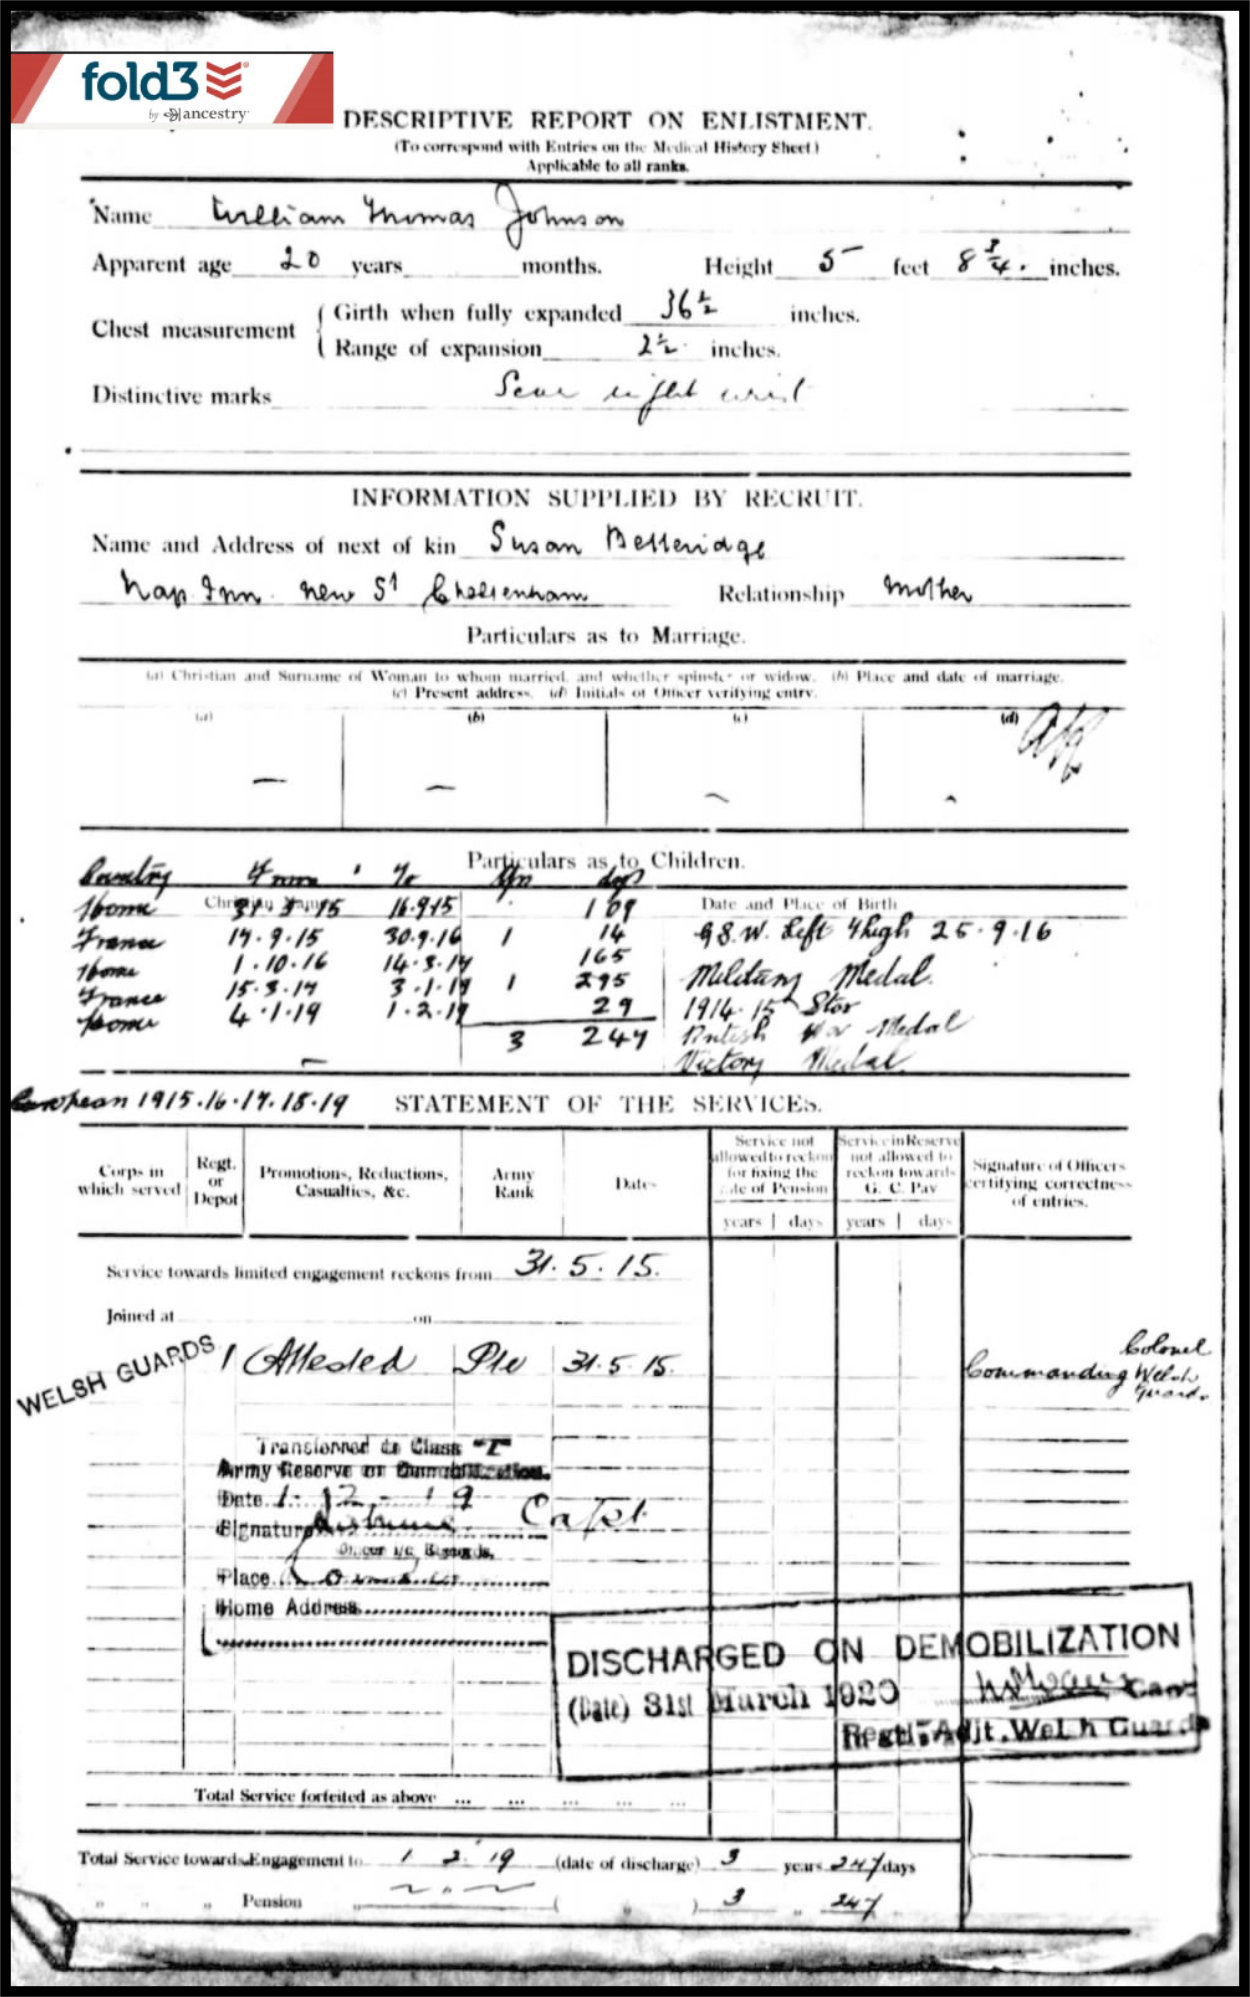 fold3
by ancestry
DESCRIPTIVE REPORT ON ENLISTMENT.
(To correspond with Entries on the Medical History Sheet)
Applicable to all ranks.
Name William Thomas Johnson
Apparent age 20 years months. Height 5 feet 8 3/4 . inches.
Chest measurement { Girth when fully expanded 36 1/2 inches.
Range of expansion 2 1/2 inches.
Distinctive marks Scar right wrist
INFORMATION SUPPLIED BY RECRUIT.
Name and Address of next of kin Susan Betteridge
Nap. Inn. New St Cheltenham Relationship Mother
Particulars as to Marriage.
(a) Christian and Surname of Woman to whom married, and whether spinster or widow. (b) Place and date of marriage.
(c) Present address. (d) Initials of Officer verifying entry.
(a) (b) (c) (d)
Particulars as to Children.
Country From To Yrs days
Christian Name Date and Place of Birth
Home 31. 5. 15 16.9.15 109
France 17. 9. 15 30.9.16 1 14 G.S.W. Left Thigh 25.9.16
Home 1. 10. 16 14. 3. 17 165
France 15. 3. 17 3. 1. 19 1 295 Military Medal.
Home 4. 1. 19 1. 2. 19 29 1914-15 Star
3 247 British War Medal
Victory Medal
European 1915.16.17.18.19 STATEMENT OF THE SERVICES.
Corps in which served Regt. or Depot Promotions, Reductions, Casualties, &c. Army Rank Dates Service not allowed to reckon for fixing the rate of Pension Service in Reserve not allowed to reckon towards G. C. Pay Signature of Officers certifying correctness of entries.
years days years days
Service towards limited engagement reckons from 31. 5. 15.
Joined at on
WELSH GUARDS 1 Attested Pte 31. 5. 15. Colonel
Commanding Welsh Guards
Transferred to Class "Z"
Army Reserve on Demobilization.
Date 1- 2 - 19
Signature Capt
Officer i/c Records,
Place
Home Address
DISCHARGED ON DEMOBILIZATION
(Date) 31st March 1920 Capt
Regtl. Adjt. Welsh Guards
Total Service forfeited as above ... ... ... ... ...
Total Service towards Engagement to 1 2 19 (date of discharge) 3 years 247 days
" " " Pension " ( " ) 3 " 247 "